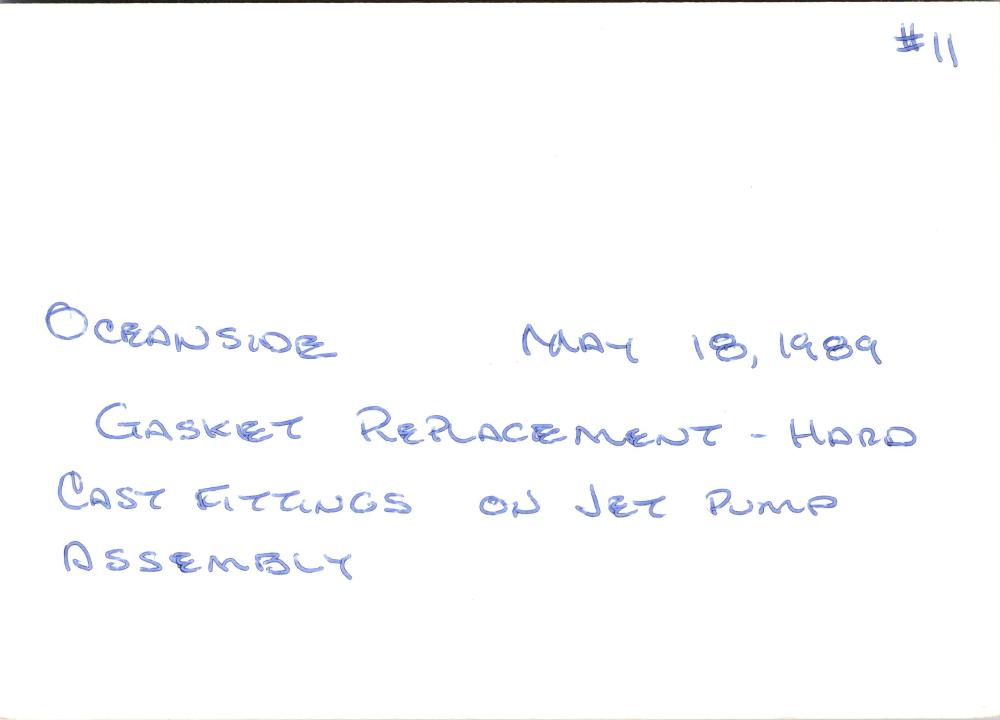 #11
OCEANSIDE MAY 18, 1989
GASKET REPLACEMENT - HARD
CAST FITTINGS ON JET PUMP
ASSEMBLY